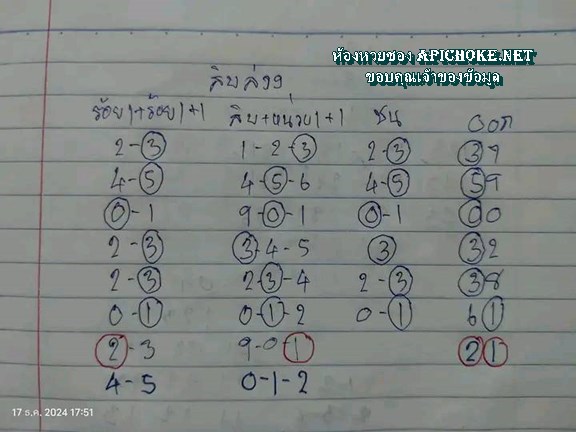 ห้องหวยซอง APICHOKE.NET
ขอบคุณเจ้าของข้อมูล
สิบล่าง
ร้อย1+ร้อย1+1 สิบ+หน่วย1+1 ชน ออก
2-3 1-2-3 2-3 39
4-5 4-5-6 4-5 59
0-1 9-0-1 0-1 00
2-3 3-4-5 3 32
2-3 2-3-4 2-3 38
0-1 0-1-2 0-1 61
2-3 9-0-1 21
4-5 0-1-2
17 ธ.ค. 2024 17:51